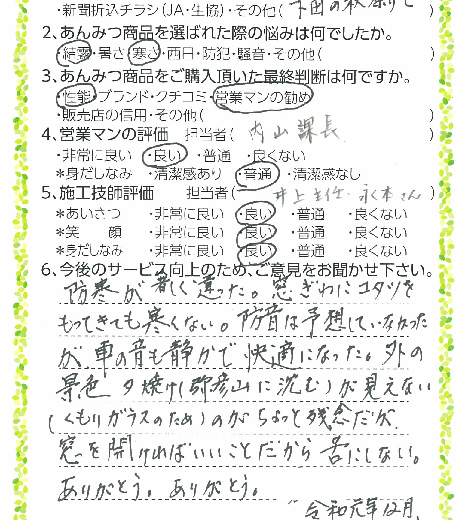 ・新聞折込チラシ(JA・生協)・その他(下田の秋祭りで)
2、あんみつ商品を選ばれた際の悩みは何でしたか。
・結露・暑さ・寒さ・西日・防犯・騒音・その他( )
3、あんみつ商品をご購入頂いた最終判断は何ですか。
・性能・ブランド・クチコミ・営業マンの勧め
・販売店の信用・その他( )
4、営業マンの評価 担当者( 内山課長 )
・非常に良い ・良い ・普通 ・良くない
*身だしなみ ・清潔感あり ・普通 ・清潔感なし
5、施工技師評価 担当者( 井上主任・永本さん )
*あいさつ ・非常に良い ・良い ・普通 ・良くない
*笑 顔 ・非常に良い ・良い ・普通 ・良くない
*身だしなみ ・非常に良い ・良い ・普通 ・良くない
6、今後のサービス向上のため、ご意見をお聞かせ下さい。
防寒が著しく違った。窓ぎわにコタツを
もってきても寒くない。防音は予想していなかった
が車の音も静かで快適になった。外の
景色 夕焼け(弥彦山に沈む)が見えない
(くもりガラスのため)のがちょっと残念だが、
窓を開ければいいことだから苦にしない。
ありがとう。ありがとう。
令和元年12月、